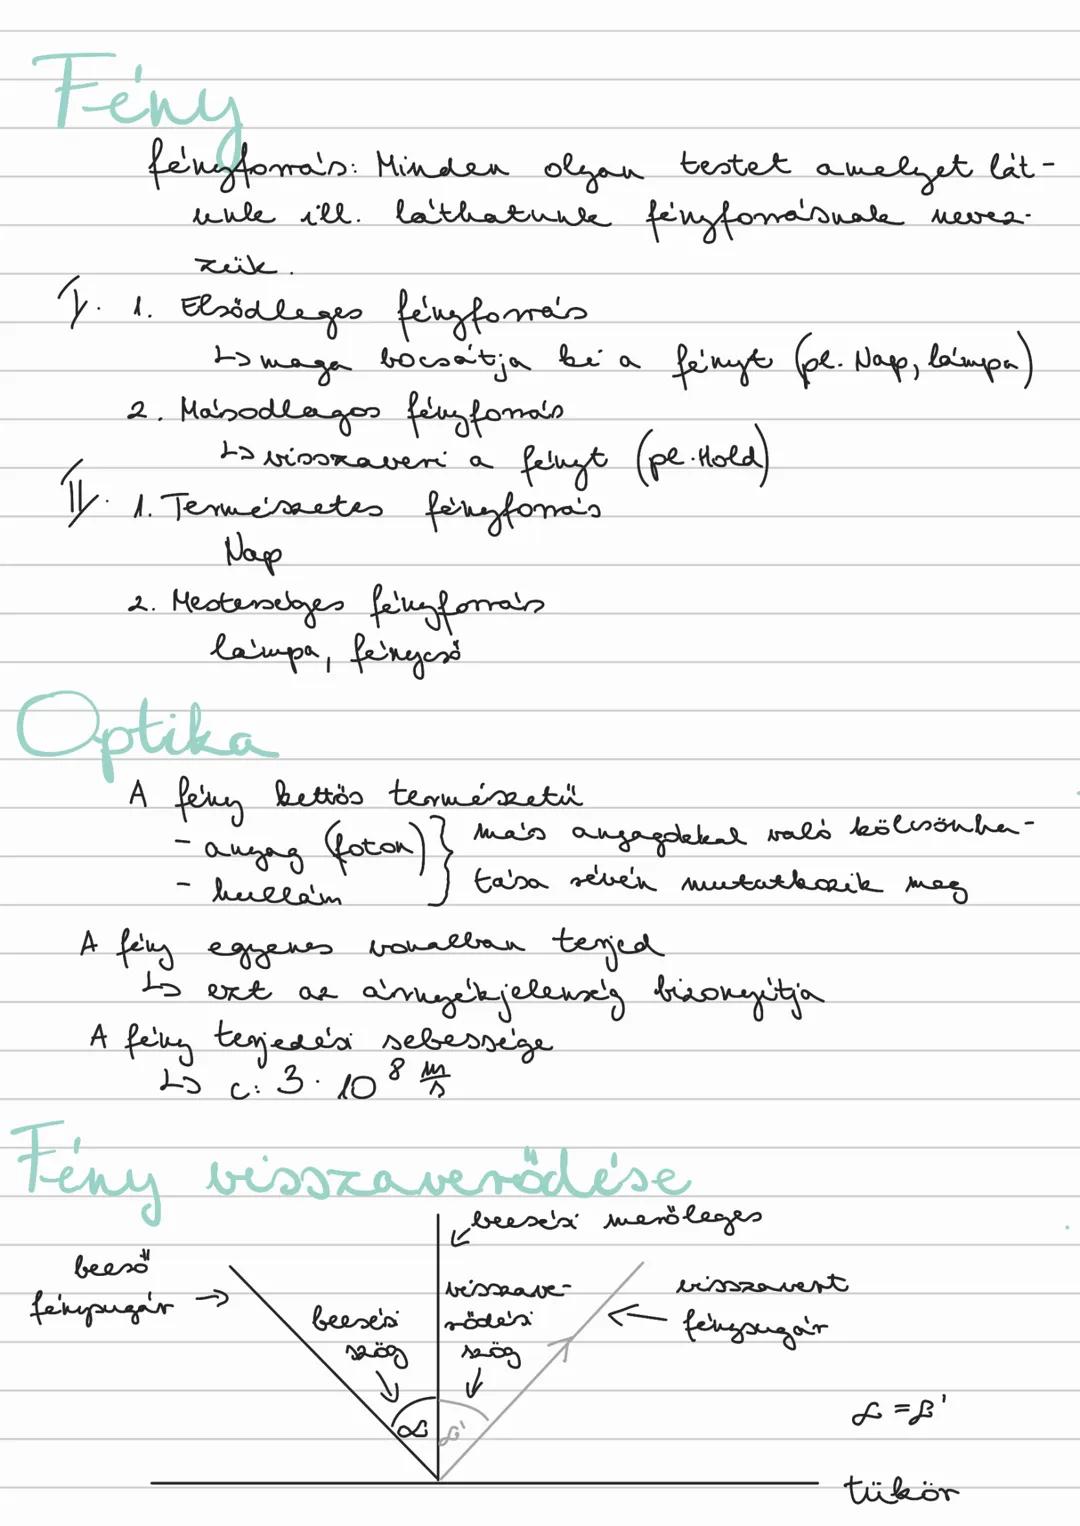 Fény
fényforrás: Minden olyan testet amelyet lát-
unk ill. láthatunk fényforrásnak nevez-
zük.
I. 1. Elsődleges fényforrás
↳ maga bocsátja ki a fényt (pl. Nap, lámpa)
2. Másodlagos fényforrás
↳ visszaveri a fényt (pl. Hold)
II. 1. Természetes fényforrás
Nap
2. Mesterséges fényforrás
lámpa, fénycső
Optika
A fény kettős természetű
- anyag (foton) } más anyagokkal való kölcsönha-
- hullám } tása sévén mutatkozik meg
A fény egyenes vonalban terjed
↳ ezt az árnyékjelenség bizonyítja
A fény terjedési sebessége
↳ c: 3 · 10⁸ m/s
Fény visszaverődése
beesési merőleges
beeső
fénysugár →
beesési
szög
visszave-
rődési
szög
visszavert
← fénysugár
α
α'
α = β'
tükör